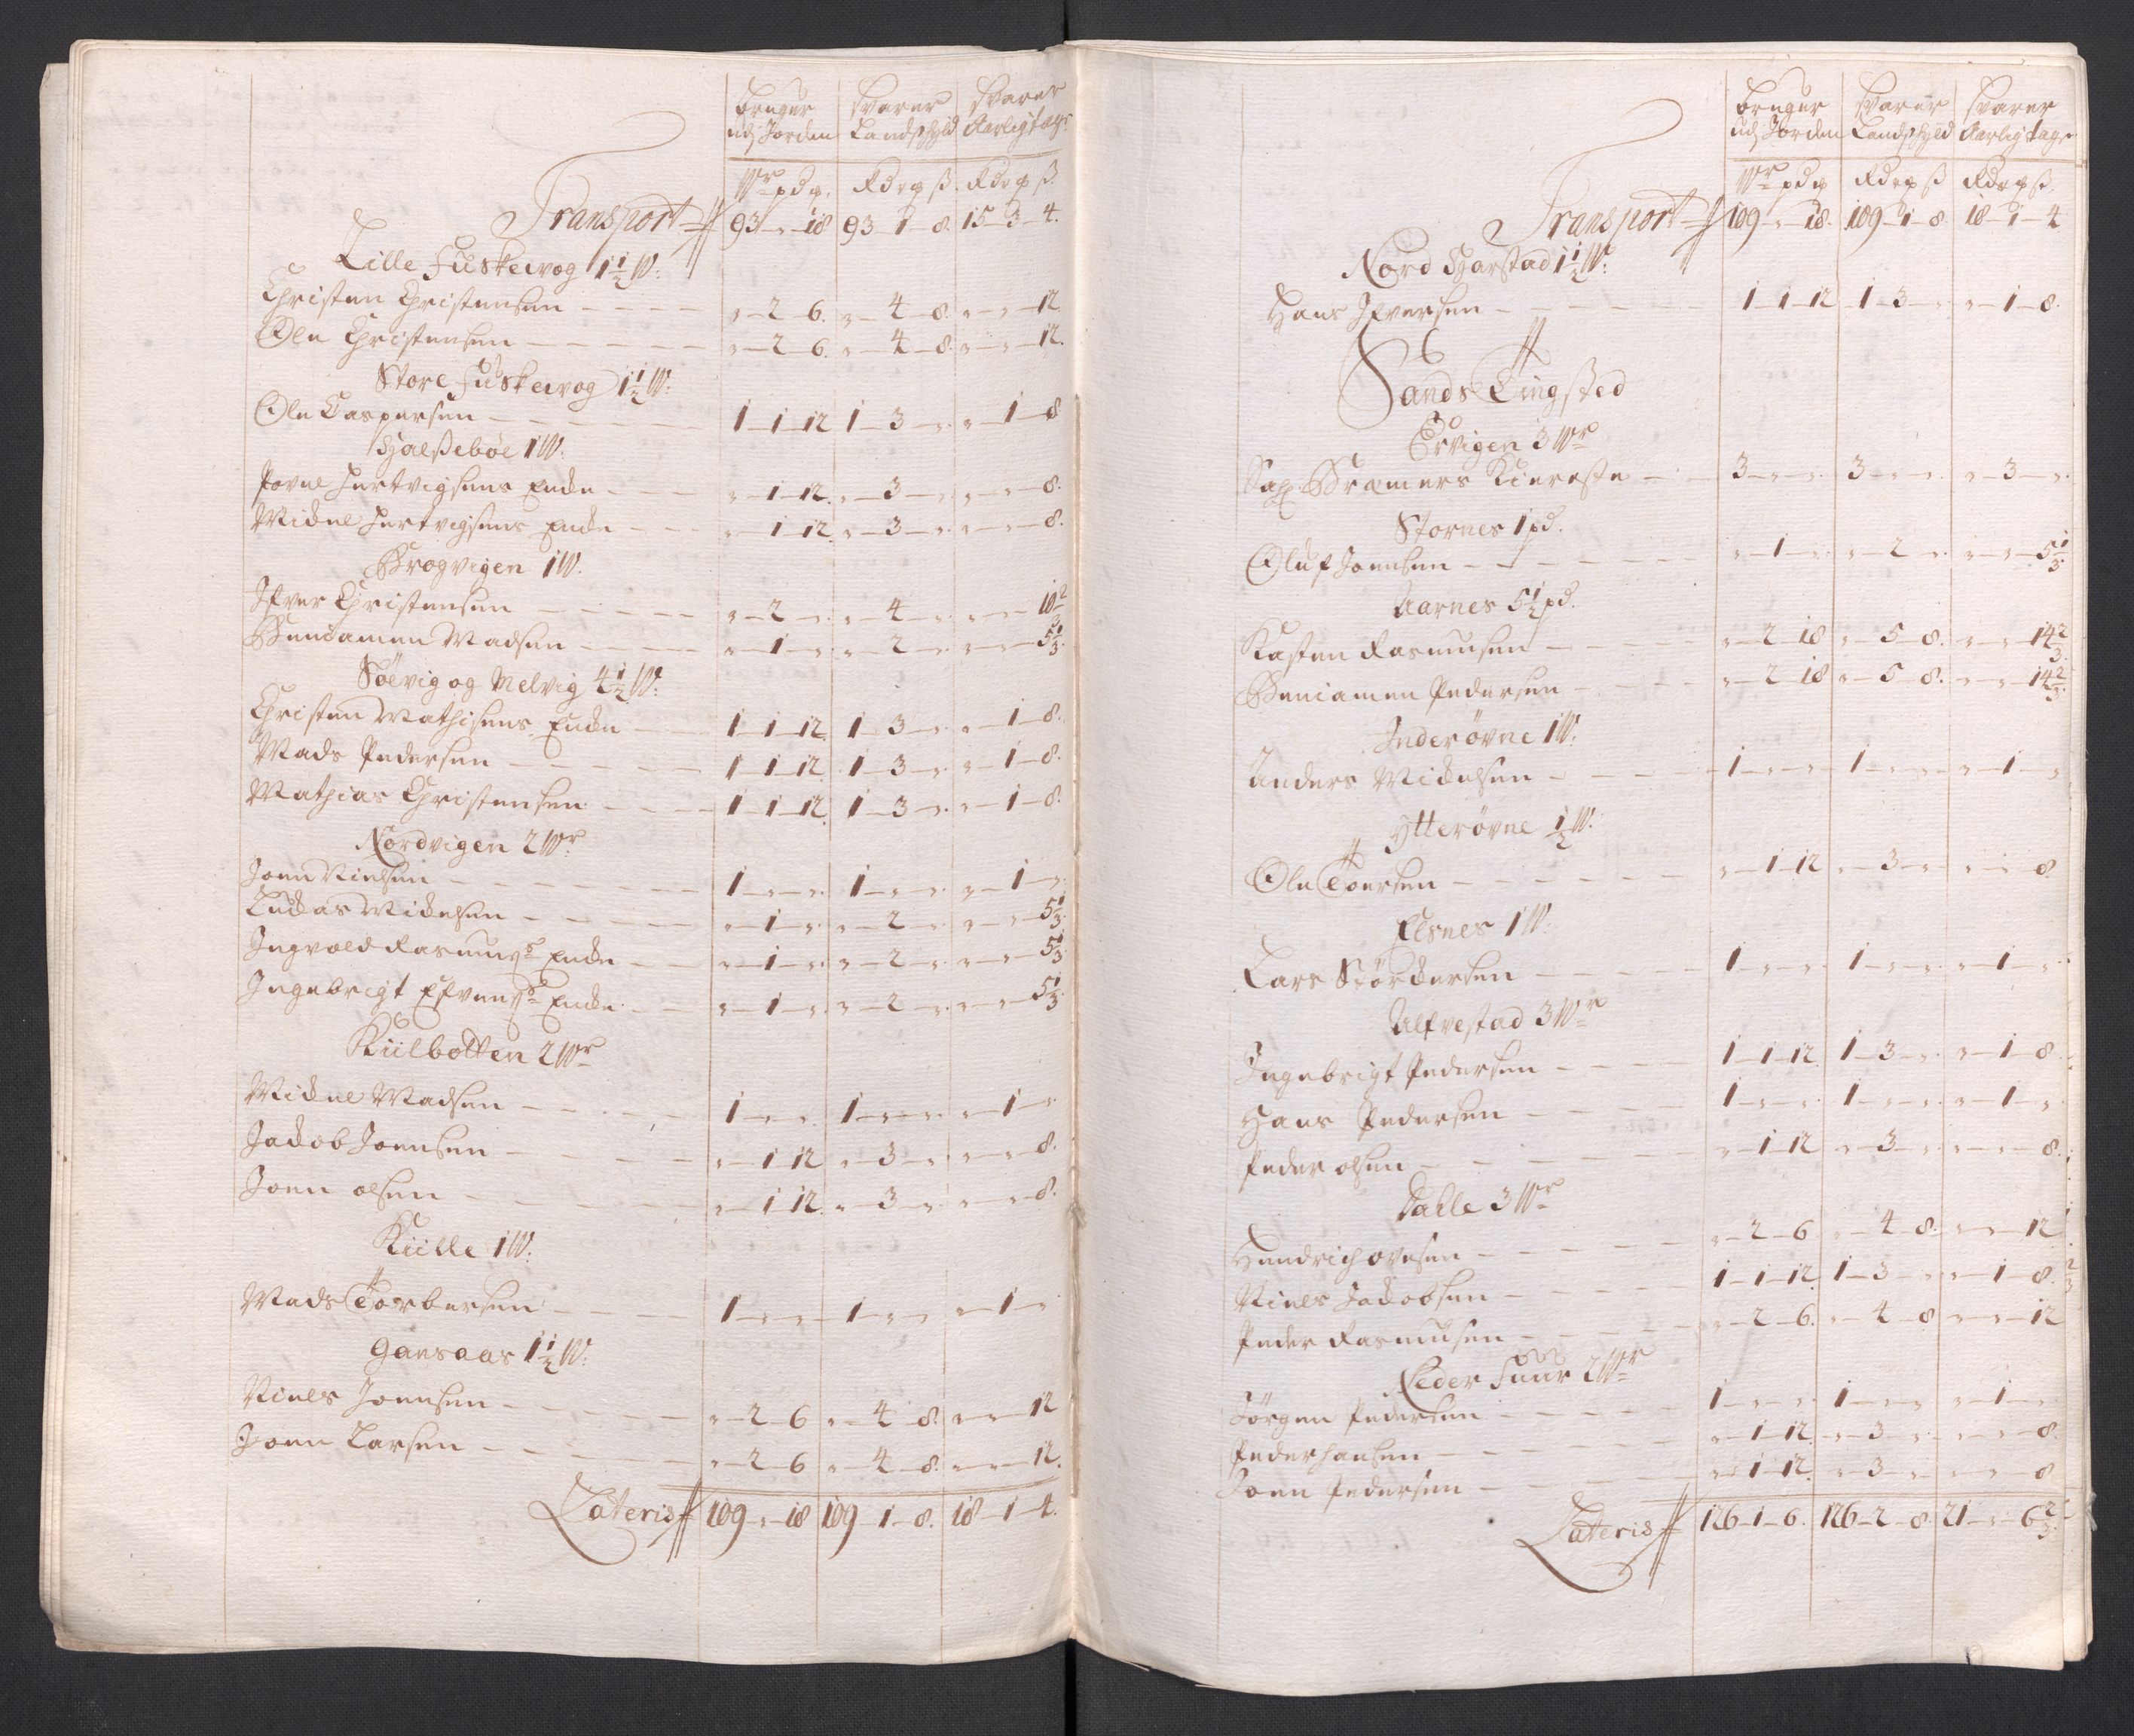 bruger svarer svarer
udj Jorden Landschyld Aarlig tage
Wr pd g. Rd ort ß. Rd ort ß.
Transport 93 - „ - 18 93 - 1 - 8. 15 - 3 - 4.
Lille Fuskewog 1½ W:
Christen Christensen „ - 2 - 6. „ - 4 - 8. „ - „ - 12
Ole Christensen „ - 2 - 6. „ - 4 - 8. „ - „ - 12.
Store Fuskewog 1½ W:
Ole Caspersen 1 - 1 - 12 1 - 3 - „ „ - 1 - 8
Halßebøe 1 W.
Povel Hertvigsens Encke „ - 1 - 12. „ - 3 - „ „ - „ - 8.
Mickel Hertvigsens Encke „ - 1 - 12. „ - 3 - „ „ - „ - 8.
Krogvigen 1 W.
Ifver Christensen „ - 2 - „ „ - 4 - „ „ - „ - 10 2/3
Beniamen Madsen „ - 1 - „ „ - 2 - „ „ - „ - 5 1/3.
Søevig og Melvig 4½ W:
Christen Mathisens Encke 1 - 1 - 12. 1 - 3 - „ „ - 1 - 8.
Mads Pedersen 1 - 1 - 12. 1 - 3 - „ „ - 1 - 8.
Mathias Christensen 1 - 1 - 12. 1 - 3 - „ „ - 1 - 8.
Nordvigen 2 Wr
Joen Nielsen 1 - „ - „ 1 - „ - „ „ - 1 - „
Luckas Mickelsen „ - 1 - „ „ - 2 - „ „ - „ - 5 1/3.
Ingvold Rasmuss: Encke „ - 1 - „ „ - 2 - „ „ - „ - 5 1/3.
Ingebrigt Efvens: Encke „ - 1 - „ „ - 2 - „ „ - „ - 5 1/3.
Kiilbotten 2 Wr
Mickel Madsen 1 - „ - „ 1 - „ - „ „ - 1 - „
Jackob Joensen „ - 1 - 12 „ - 3 - „ „ - „ - 8.
Joen olsen „ - 1 - 12. „ - 3 - „ „ - „ - 8.
Kiille 1 W.
Mads Torbersen 1 - „ - „ 1 - „ - „ „ - 1 - „
Gansaas 1½ W:
Niels Joensen „ - 2 - 6 „ - 4 - 8. „ - „ - 12
Joen Larsen „ - 2 - 6 „ - 4 - 8. „ - „ - 12.
Lateris 109 - „ - 18 109 - 1 - 8. 18 - 1 - 4.
bruger svarer svarer
udj Jorden Landschyld Aarlig tage
Wr pd g Rd ort ß Rd ort ß.
Transport 109 - „ - 18. 109 - 1 - 8. 18 - 1 - 4
Nord Harstad 1½ W:
Hans Ifversen 1 - 1 - 12 1 - 3 - „ „ - 1 - 8.
Sands Tingsted
Ervigen 3 Wr
Sal: Bramers Kiereste 3 - „ - „ 3 - „ - „ „ - 3 - „
Stornes 1 pd.
Oluf Joensen „ - 1 - „ „ - 2 - „ „ - „ - 5 1/3
Aarnes 5½ pd.
Kasten Rasmusen „ - 2 - 18 „ - 5 - 8. „ - „ - 14 2/3.
Beniamen Pedersen „ - 2 - 18 „ - 5 - 8. „ - „ - 14 2/3.
Inderøvne 1 W:
Anders Mickelsen 1 - „ - „ 1 - „ - „ „ - 1 - „
Ytterøvne ½ W.
Ole Toersen „ - 1 - 12 „ - 3 - „ „ - „ - 8
Elsnes 1 W.
Lars Størckersen 1 - „ - „ 1 - „ - „ „ - 1 - „
Alfvestad 3 Wr
Ingebrigt Pedersen 1 - 1 - 12. 1 - 3 - „ „ - 1 - 8
Hans Pedersen 1 - „ - „ 1 - „ - „ „ - 1 - „
Peder olsen „ - 1 - 12 „ - 3 - „ „ - „ - 8.
Dalle 3 Wr
Hendrich ovesen „ - 2 - 6 „ - 4 - 8. „ - „ - 12
Niels Jackobsen 1 - 1 - 12. 1 - 3 - „ „ - 1 - 8.
Peder Rasmusen „ - 2 - 6. „ - 4 - 8 „ - „ - 12
Neder Fuur 2 Wr
Jørgen Pedersen 1 - „ - „ 1 - „ - „ „ - 1 - „
Peder hansen „ - 1 - 12. „ - 3 - „ „ - „ - 8.
Joen Pedersen „ - 1 - 12. „ - 3 - „ „ - „ - 8
Lateris 126 - 1 - 6. 126 - 2 - 8. 21 - „ - 6 2/3.